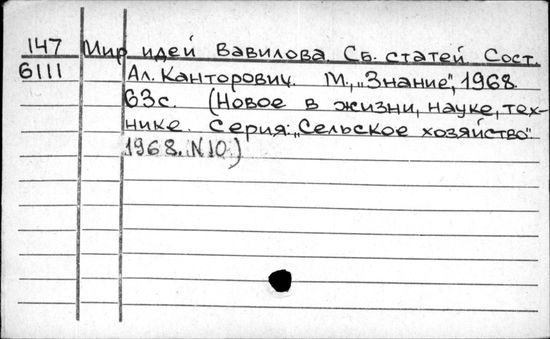 147 Мир идей Вавилова. Сб. статей. Сост.
6111 Ал. Канторович. М., „Знание", 1968.
63с. (Новое в жизни, науке, тех-
нике. Серия: „Сельское хозяйство"
1968. N10.)